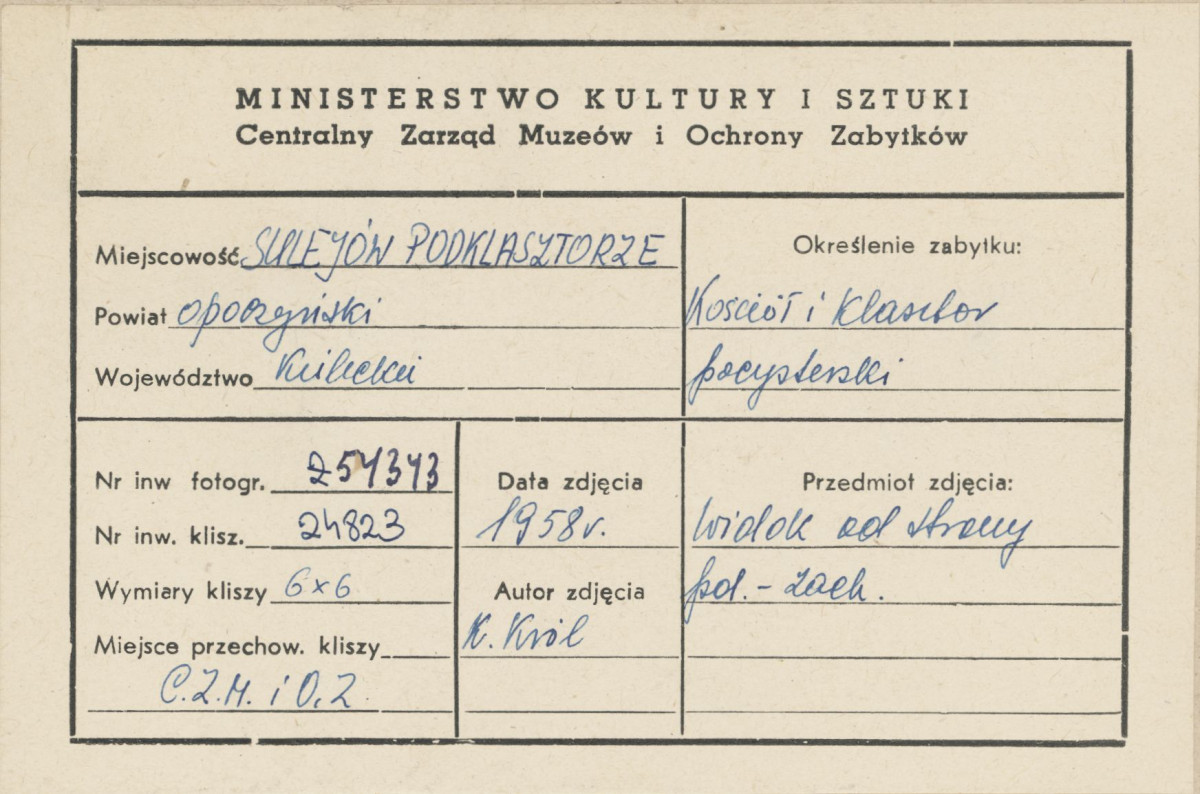 MINISTERSTWO KULTURY I SZTUKI
Centralny Zarząd Muzeów i Ochrony Zabytków
Miejscowość SULEJÓW PODKLASZTORZE
Powiat opoczyński
Województwo Kieleckie
Określenie zabytku:
Kościół i klasztor
pocysterski
Nr inw fotogr. 254343
Nr inw. klisz. 24823
Wymiary kliszy 6x6
Miejsce przechow. kliszy
C.Z.M. i O.Z
Data zdjęcia
1958r.
Autor zdjęcia
K. Król
Przedmiot zdjęcia:
Widok od strony
pd.-zach.